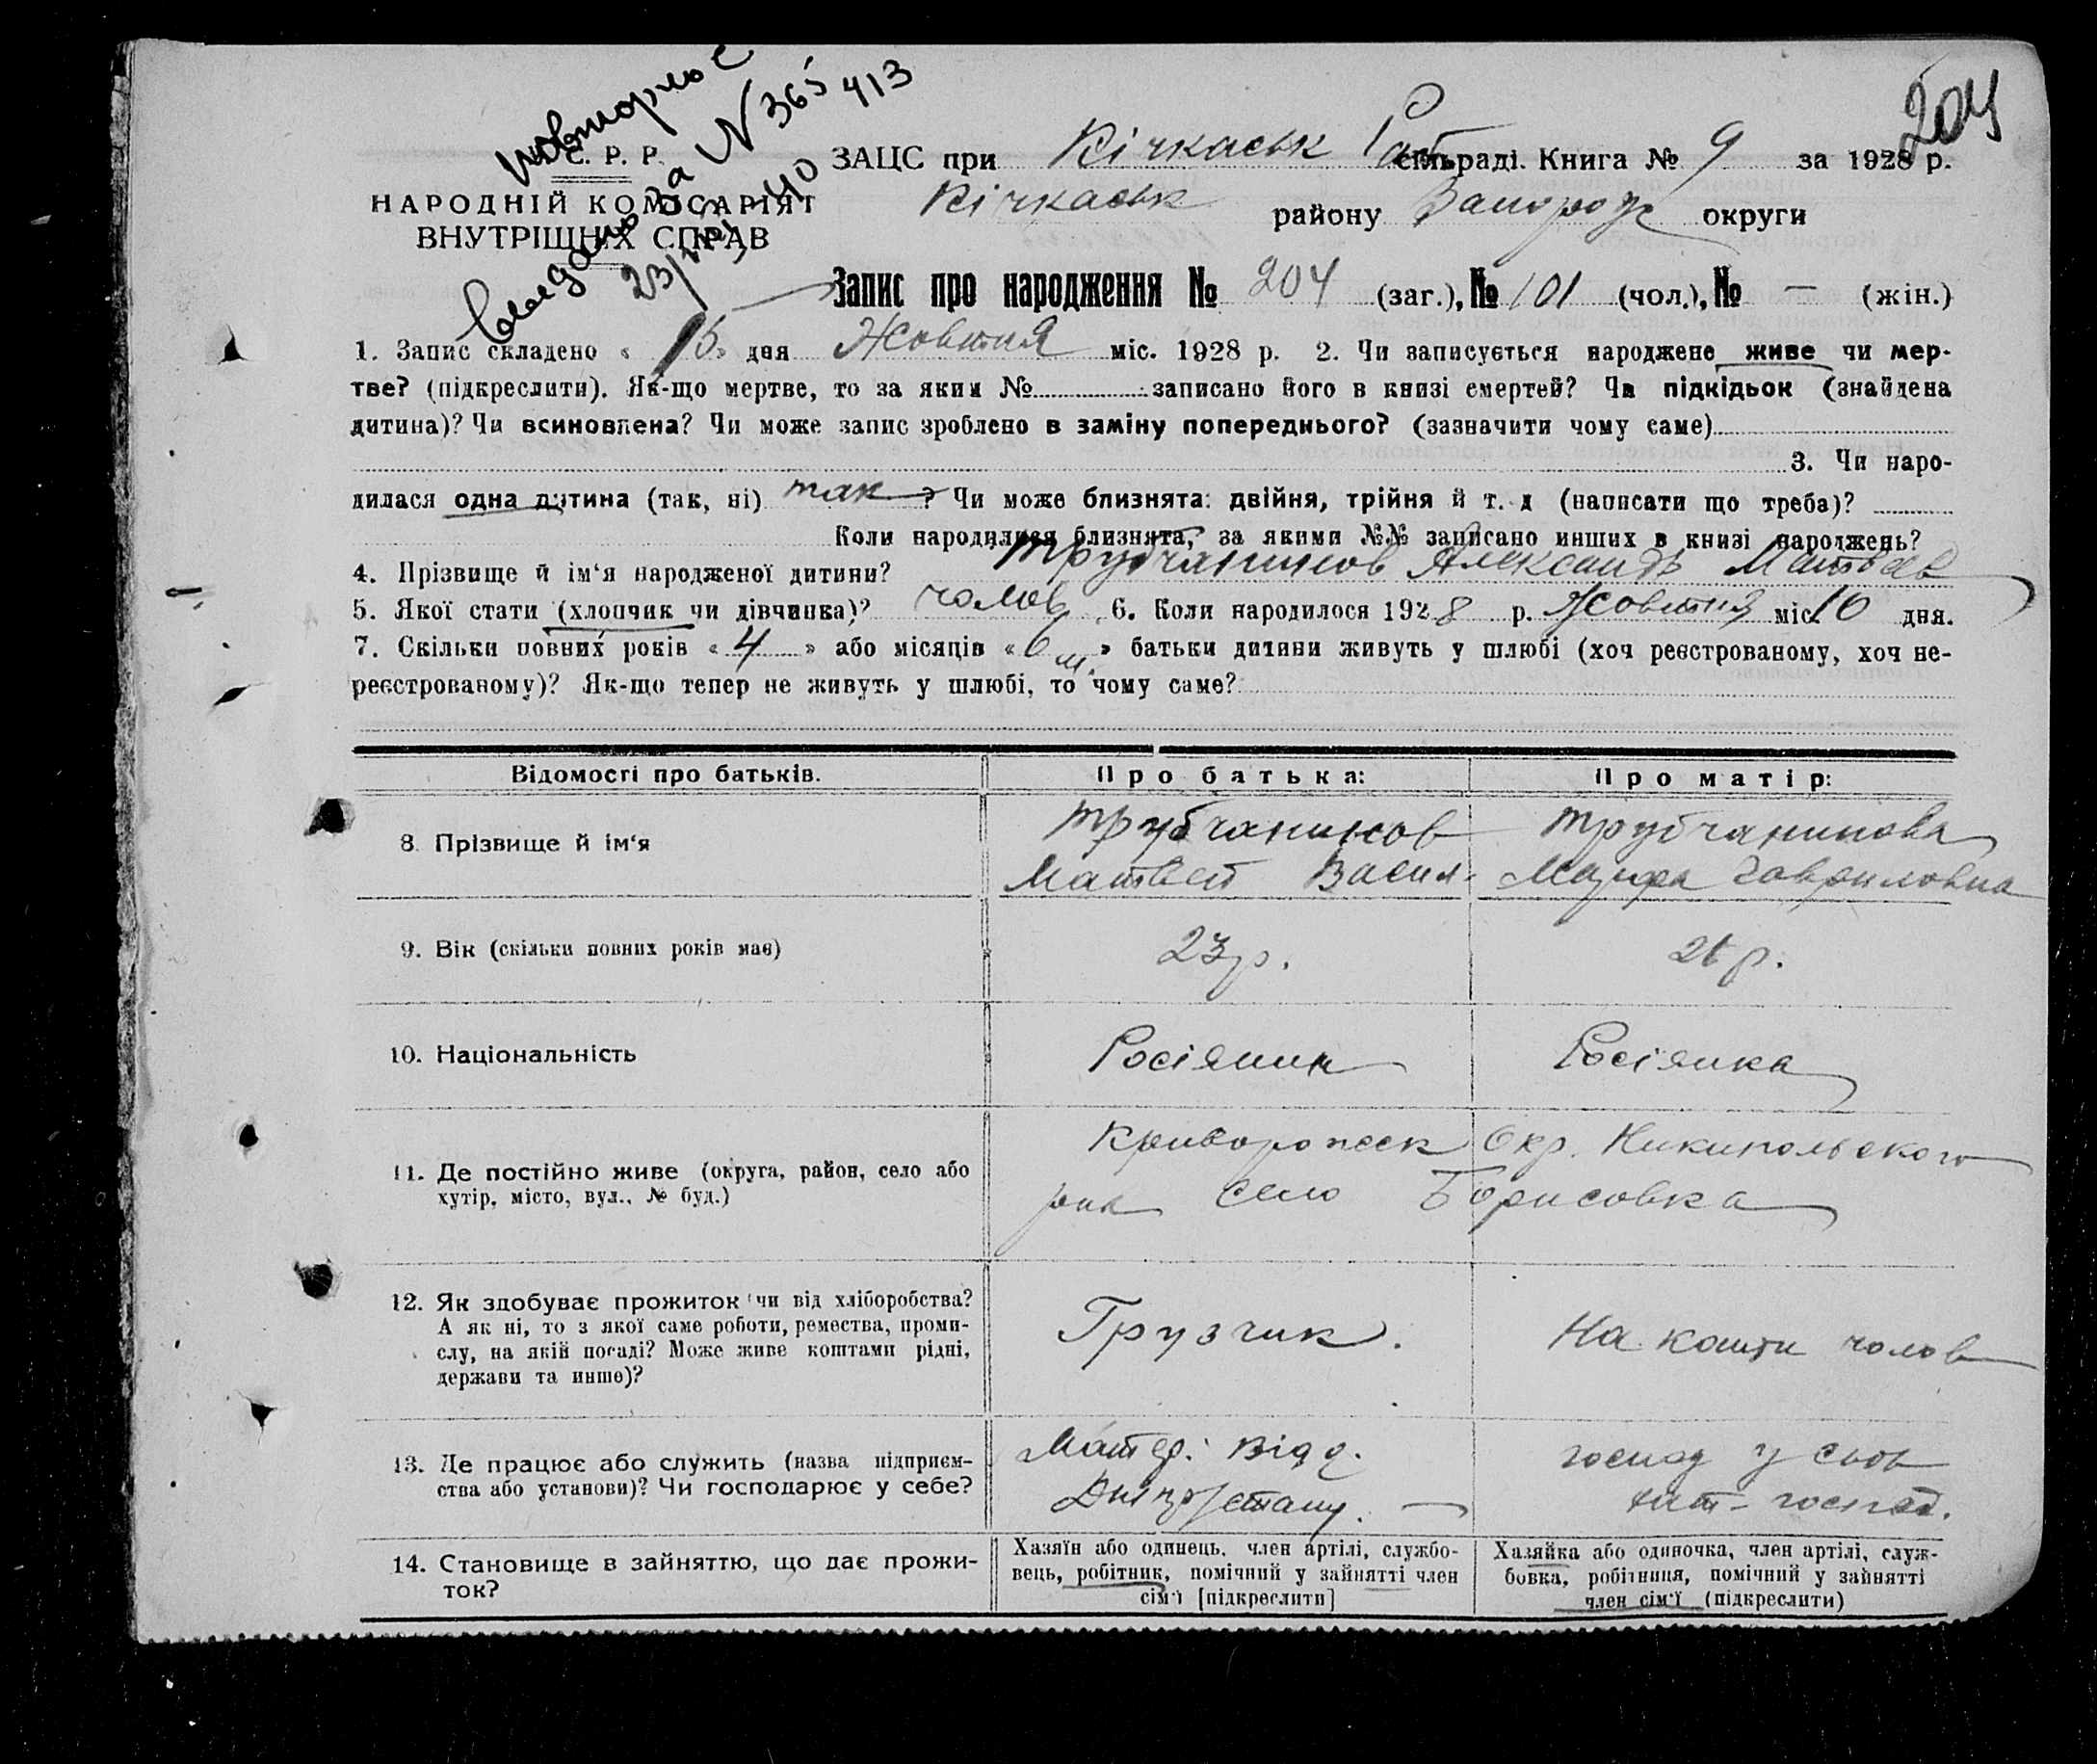 повторное
выдано за N 365413
23/VIII 40
204
С. Р. Р.
НАРОДНІЙ КОМІСАРІЯТ
ВНУТРІШНІХ СПРАВ
ЗАЦС при Кічкаськ сільраді. Книга № 9 за 1928 р.
Кічкаськ району Запорож округи
Запис про народження № 204 (заг.), № 101 (чол.), № — (жін.)
1. Запис складено « 15 » дня Жовтня міс. 1928 р. 2. Чи записується народжене живе чи мер-
тве? (підкреслити). Як-що мертве, то за яким № записано його в книзі смертей? Чи підкідьок (знайдена
дитина)? Чи всиновлена? Чи може запис зроблено в заміну попереднього? (зазначити чому саме)
3. Чи наро-
дилася одна дитина (так, ні) так ? Чи може близнята: двійня, трійня й т. д (написати що треба)?
Коли народилися близнята, за якими №№ записано инших в книзі народжень?
4. Прізвище й ім‘я народженої дитини? Трубчанинов Александр Матвеев
5. Якої стати (хлопчик чи дівчинка)? чолов 6. Коли народилося 1928 р. Жовтня міс. 10 дня.
7. Скільки повних років « 4 » або місяців « 6 м. » батьки дитини живуть у шлюбі (хоч реєстрованому, хоч не-
реєстрованому)? Як-що тепер не живуть у шлюбі, то чому саме?
Відомості про батьків. Про батька: Про матір:
8. Прізвище й ім‘я Трубчанинов Трубчанинова
Матвей Васил. Гавриловна
9. Вік (скільки повних років має) 23 р. 26 р.
10. Національність Росіянин Росіянка
11. Де постійно живе (округа, район, село або
хутір, місто, вул., № буд.)
Криворожск Окр. Никипольского
рна село Борисовка
12. Як здобуває прожиток чи від хліборобства?
А як ні, то з якої саме роботи, ремества, проми-
слу, на якій посаді? Може живе коштами рідні,
держави та инше)?
Грузчик. На кошти чолов
13. Де працює або служить (назва підприєм-
ства або установи)? Чи господарює у себе?
Матер. відд.
Дніпростану. —
господ у своп
хат- господ.
14. Становище в зайняттю, що дає прожи-
ток?
Хазяїн або одинець, член артілі, службо-
вець, робітник, помічний у зайнятті член
сім‘ї [підкреслити]
Хазяйка або одиночка, член артілі, служ-
бовка, робітниця, помічний у зайнятті
член сім‘ї (підкреслити)